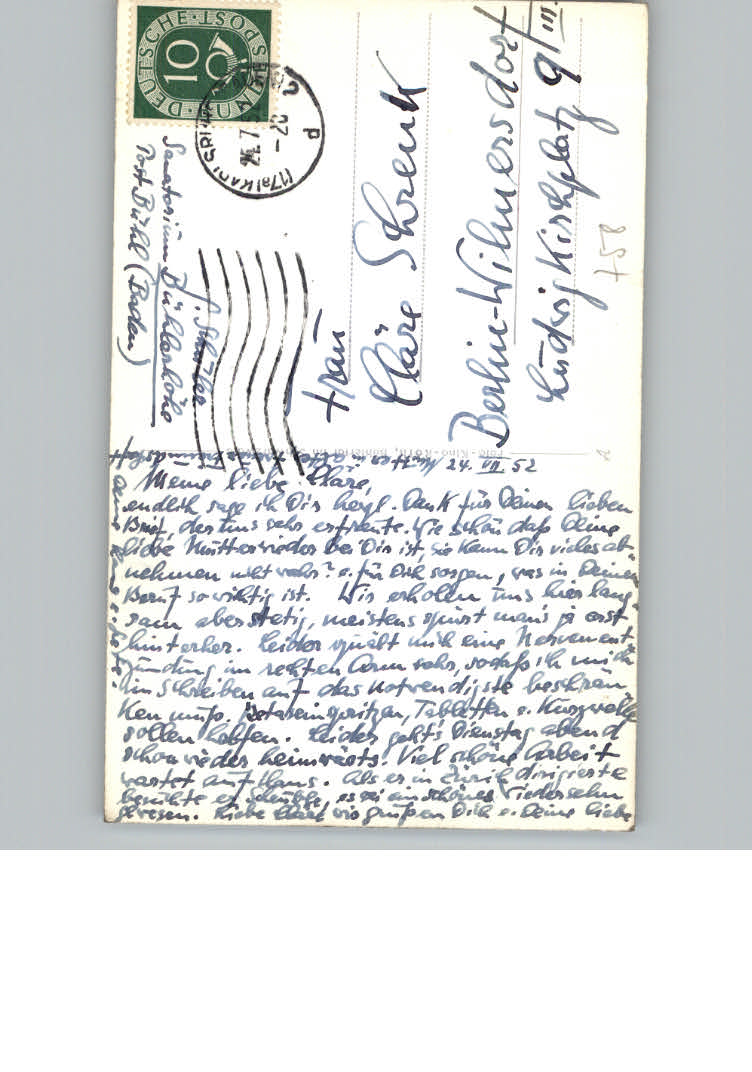 DEUTSCHE · BUNDESPOST
10
Frau
Cläre Schrenk
Berlin-Wilmersdorf
Ludwigkirchplatz 9 III
Sanatorium Bühlerhöhe
Post Bühl (Baden)
758
24. VII. 52
Meine liebe Cläre,
endlich sage ich Dir herzl. Dank für Deinen lieben
Brief, der uns sehr erfreute. Wie schön daß Deine
liebe Mutter wieder bei Dir ist, sie kann Dir vieles ab-
nehmen nicht wahr? u. für Dich sorgen, was in Deinem
Beruf so wichtig ist. Wir erholen uns hier lang-
sam aber stetig, meistens spürt man's ja erst
hinterher. Leider quält mich eine Nervenent-
zündung im rechten Arm sehr, sodaß ich mich
im Schreiben auf das Notwendigste beschrän-
ken muß. Betaxineinspritzen, Tabletten u. Kurzwelle
sollen helfen. Leider geht's Dienstag abend
schon wieder heimwärts. Viel schöne Arbeit
wartet auf Hans. Als er in Zürich dirigierte
es sei ein schönes Wiedersehn
gewesen. Liebe Cläre wir grüßen Dich u. Deine liebe
Mutter in alter